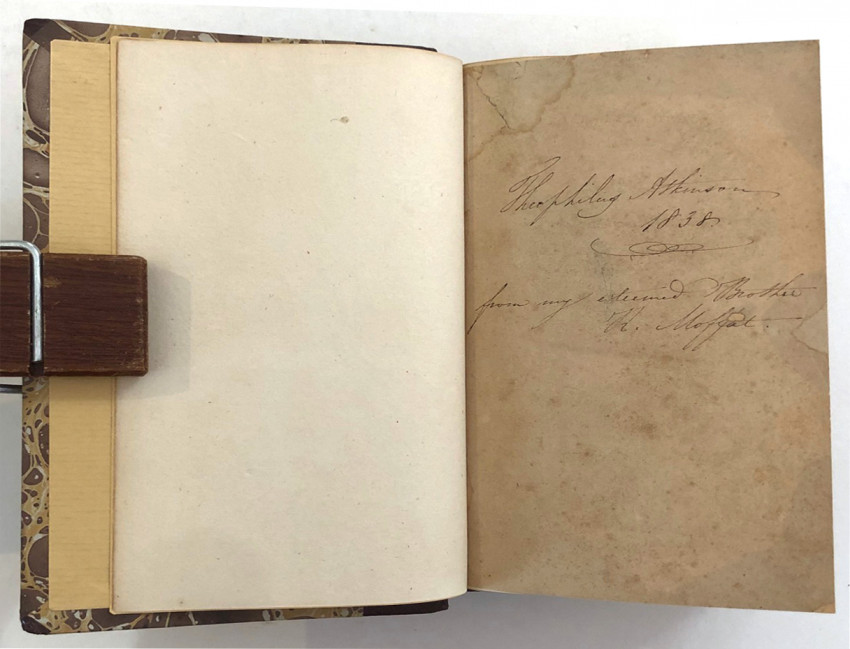 Theophilus Atkinson
1838
from my esteemed Brother
R. Moffat.